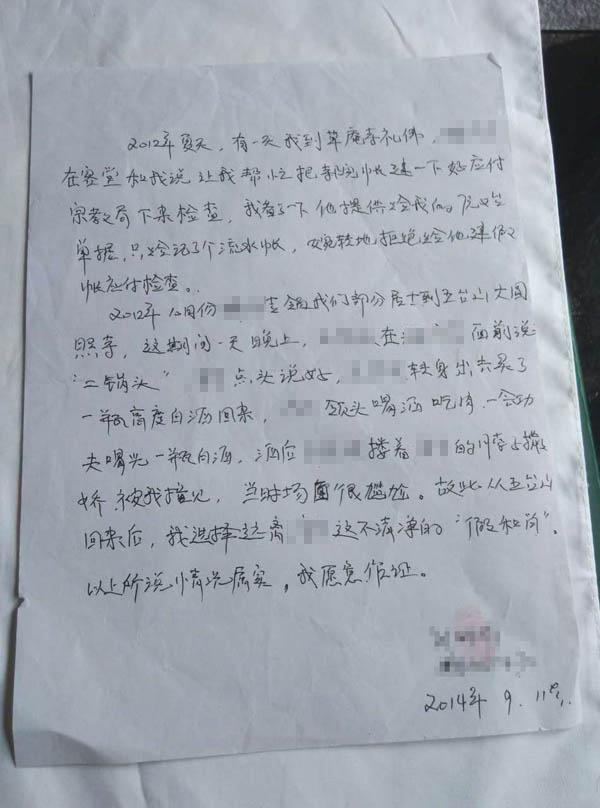 2012年夏天，有一天我到草庵寺礼佛，
在客堂和我说让我帮忙把寺院帐建一下好应付
宗教局下来检查，我看了一下他提供给我的原始
单据，只给记了个流水帐，婉转地拒绝给他建假
帐应付检查。
2012年八月份 我们部分居士到五台山大圆
照寺，这期间一天晚上， 在 面前说
“二锅头” 点头说好， 转身出去买了
一瓶高度白酒回来， 领头喝酒吃肉，一会功
夫喝光一瓶白酒，酒后 搂着 的脖子撒
娇被我撞见，当时场面很尴尬。故此从五台山
回来后，我选择远离 这不清净的“假和尚”。
以上所说情况属实，我愿意作证。
2014年9.11号.